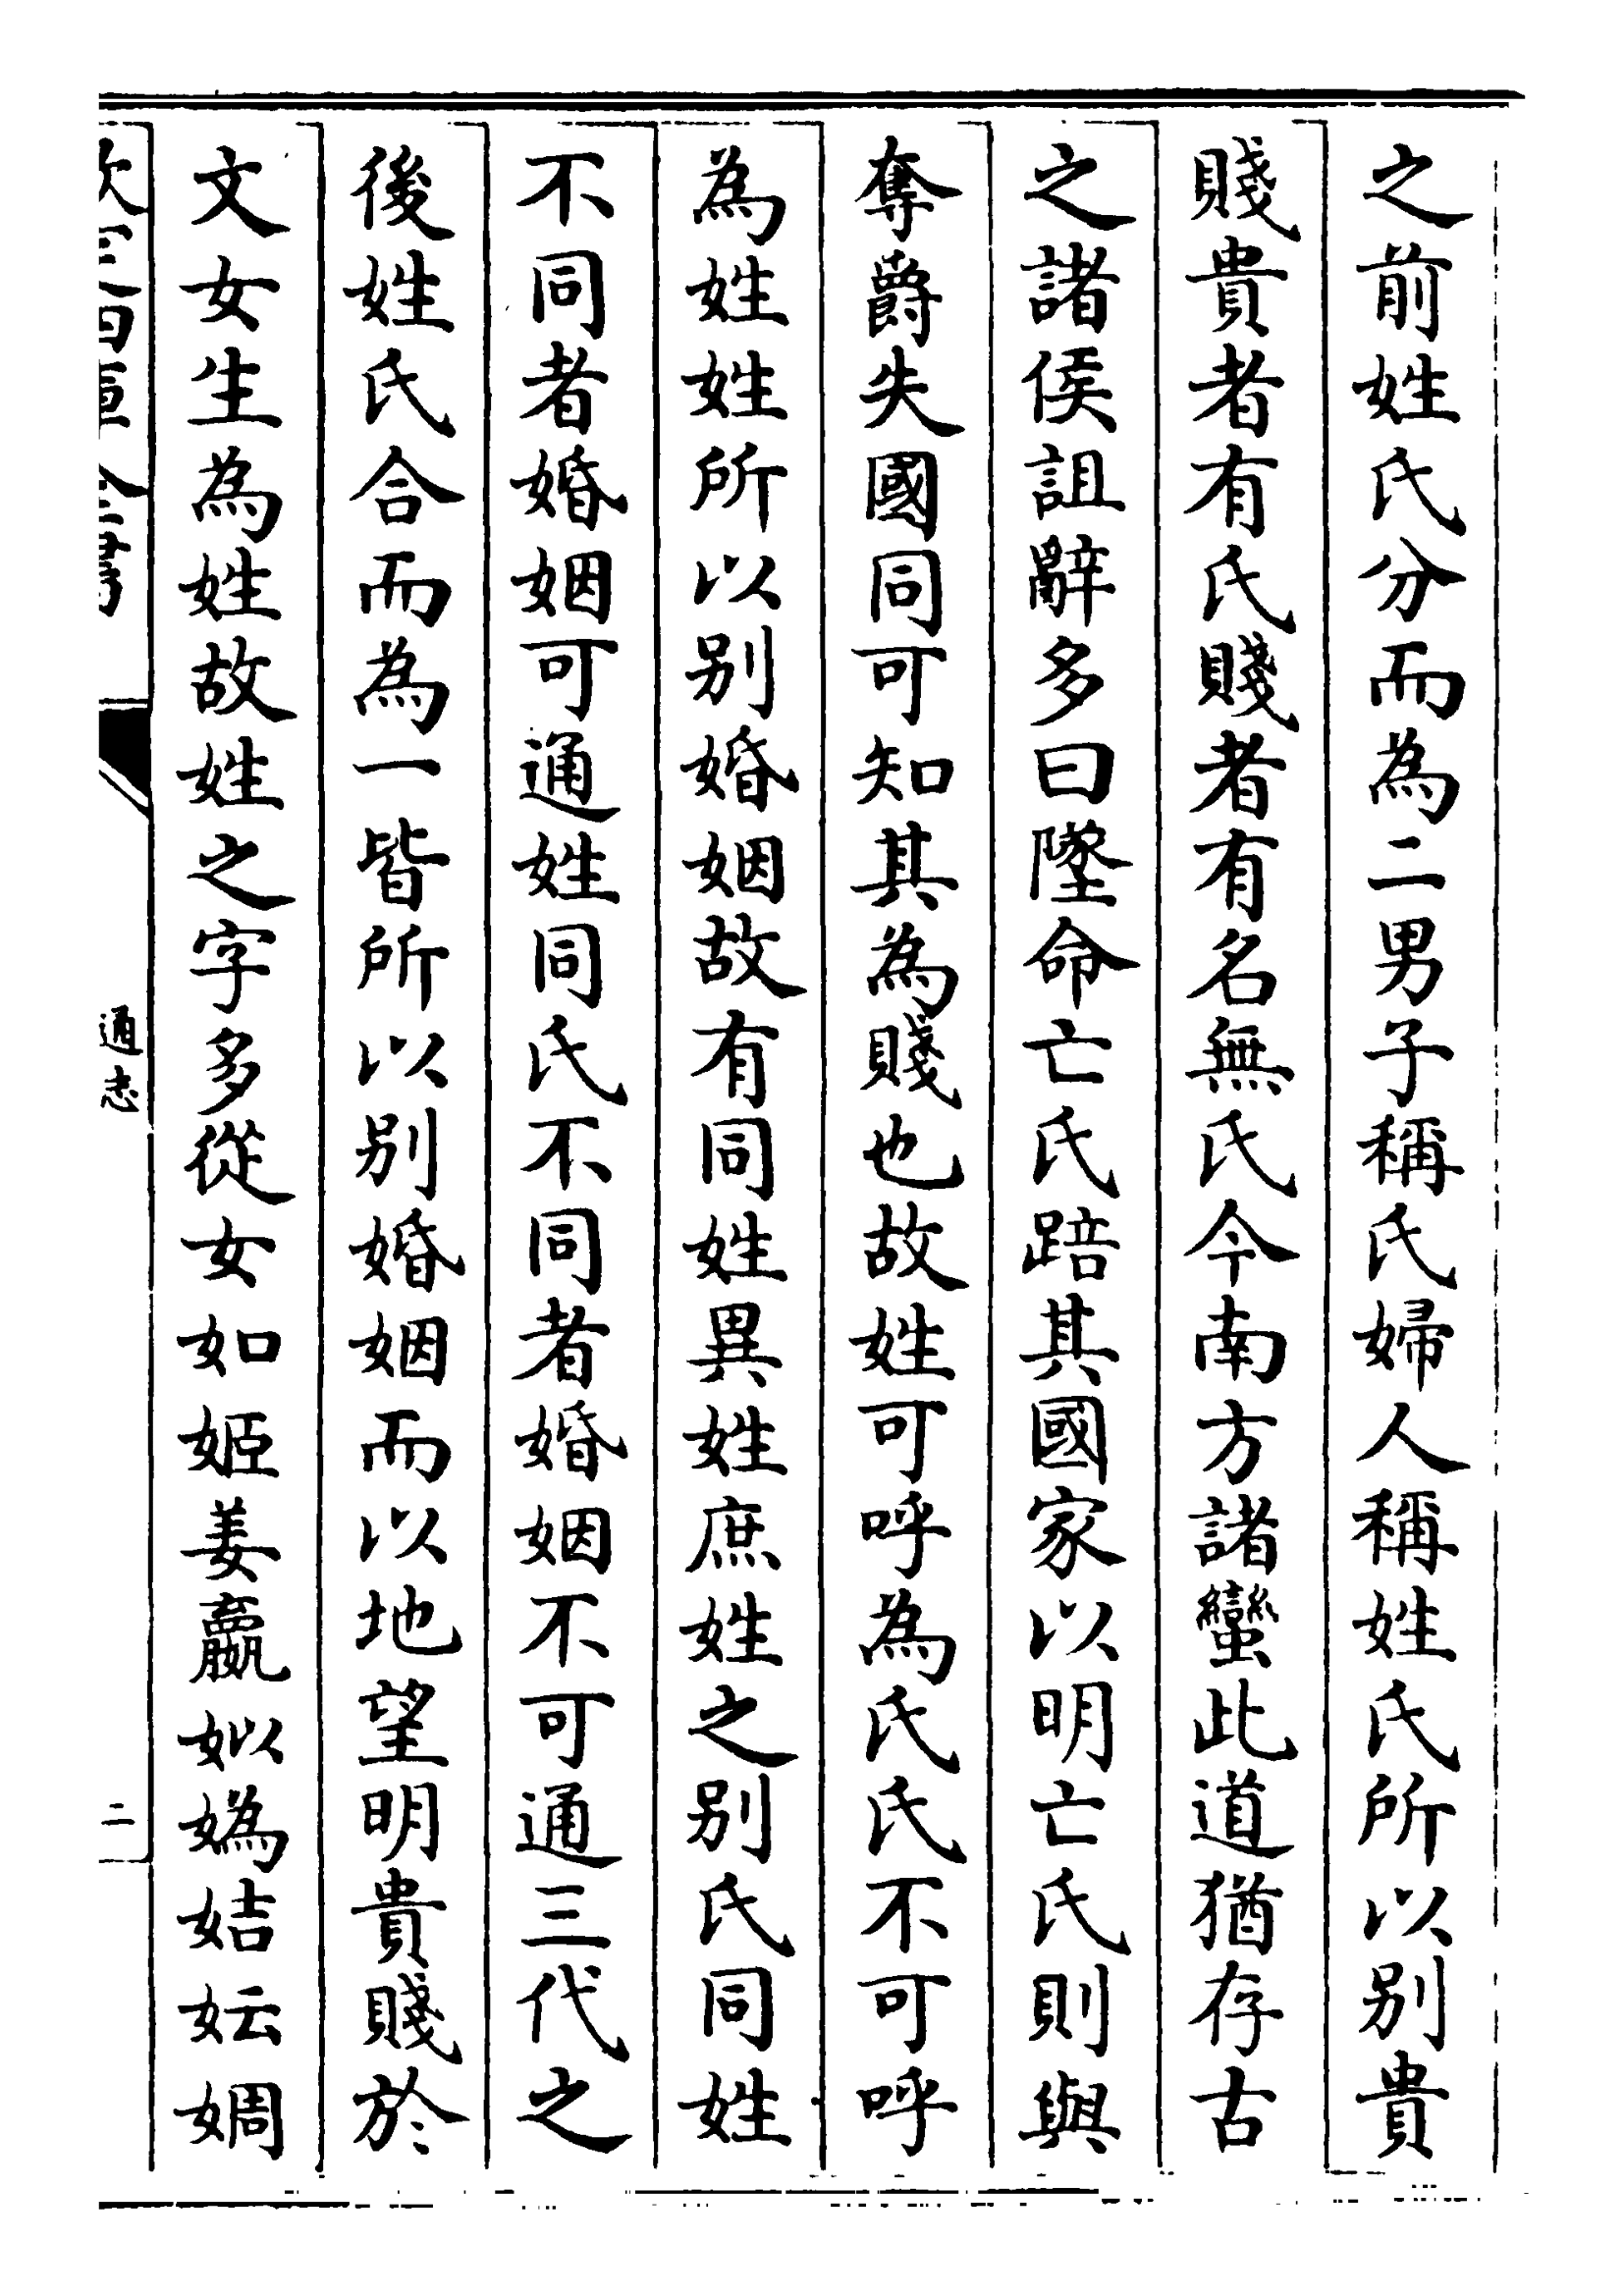 之前姓氏分而為二男子稱氏婦人稱姓氏所以别貴
賤貴者有氏賤者有名無氏今南方諸蠻此道猶存古
之諸侯詛辭多曰墜命亡氏踣其國家以明亡氏則與
奪爵失國同可知其為賤也故姓可呼為氏氏不可呼
為姓姓所以别婚姻故有同姓異姓庶姓之别氏同姓
不同者婚姻可通姓同氏不同者婚姻不可通三代之
後姓氏合而為一皆所以别婚姻而以地望明貴賤於
文女生為姓故姓之字多從女如姬姜嬴姒嬀姞妘婤
欽定四庫全書
通志
二